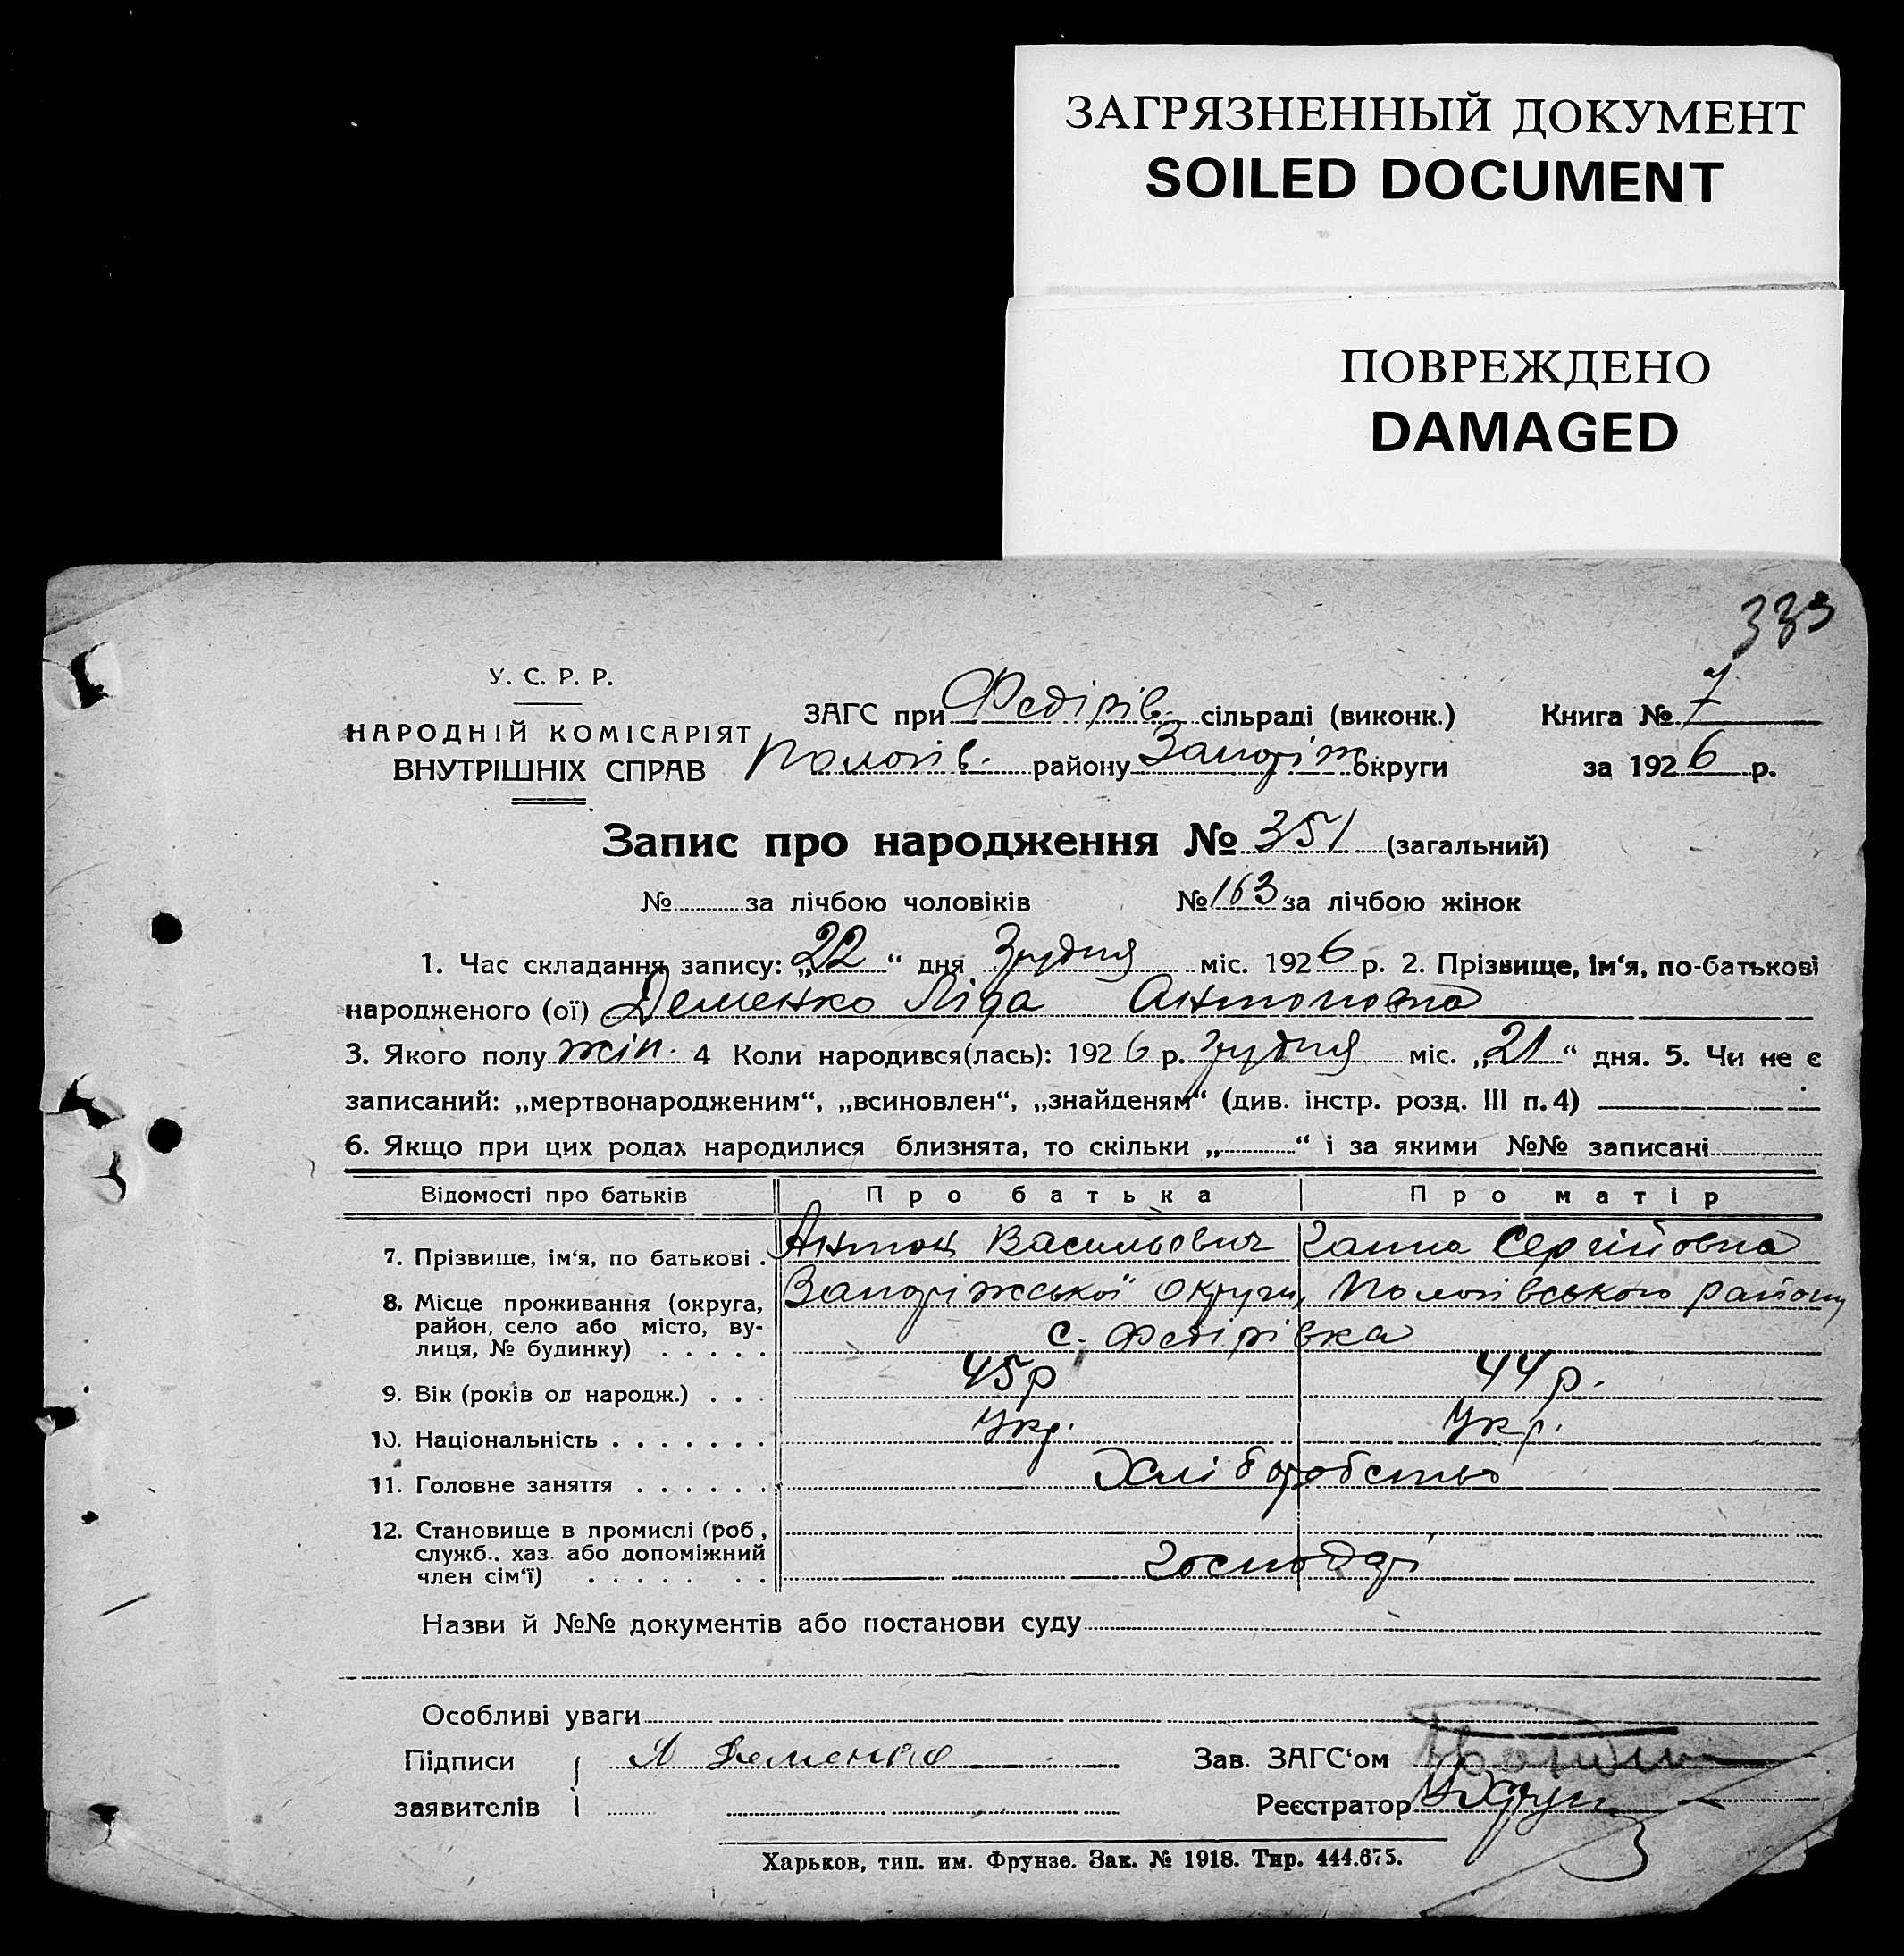 ЗАГРЯЗНЕННЫЙ ДОКУМЕНТ
SOILED DOCUMENT
ПОВРЕЖДЕНО
DAMAGED
333
У. С. Р. Р.
НАРОДНІЙ КОМІСАРІЯТ
ВНУТРІШНІХ СПРАВ
ЗАГС при Федірів. сільраді (виконк.) Книга № 7
Пологів. району Запоріж. округи за 1926 р.
Запис про народження № 351 (загальний)
№ за лічбою чоловіків № 163 за лічбою жінок
1. Час складання запису: „22“ дня Грудня міс. 1926 р. 2. Прізвище, ім‘я, по-батькові
народженого (ої) Деменко Ліда Антоновна
3. Якого полу жін. 4 Коли народився(лась): 1926 р. грудня міс. „21“ дня. 5. Чи не є
записаний: „мертвонародженим“, „всиновлен“, „знайденям“ (див. інстр. розд. III п. 4)
6. Якщо при цих родах народилися близнята, то скільки „ “ і за якими №№ записані
Відомості про батьків Про батька Про матір
7. Прізвище, ім‘я, по батькові . Антон Васильович Ганна Сергійовна
8. Місце проживання (округа, Запоріжської округи, Пологівського району
район, село або місто, ву-
лиця, № будинку) . . . . . с. Федірівка
9. Вік (років од народж.) . . . 45р 44р.
10. Національність . . . . . . . Укр. Укр.
11. Головне заняття . . . . . . Хліборобство
12. Становище в промислі (роб,
служб., хаз. або допоміжний
член сім‘ї) . . . . . . . Господарі
Назви й №№ документів або постанови суду
Особливі уваги
Підписи А Деменко Зав. ЗАГС‘ом
заявителів Реєстратор
Харьков, тип. им. Фрунзе. Зак. № 1918. Тир. 444.675.